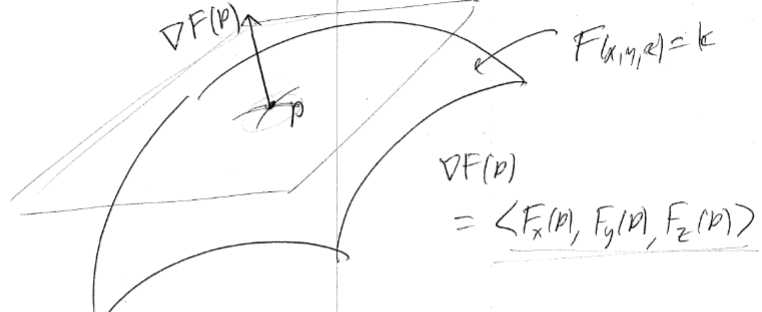 ∇F(p)
F(x,y,z)=k
p
∇F(p)
= <Fx(p), Fy(p), Fz(p)>